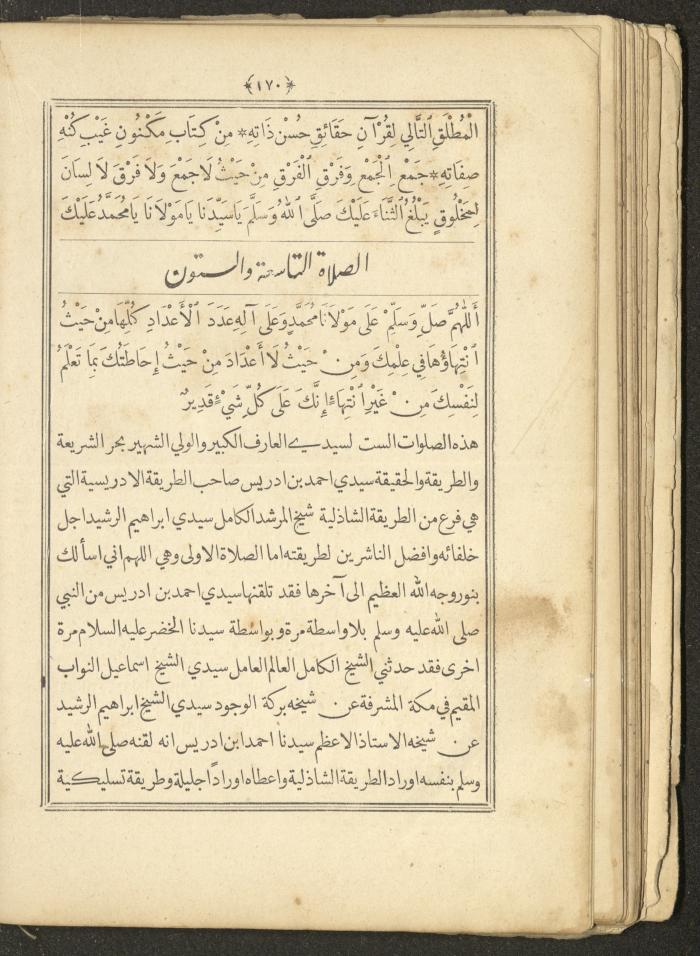 ﴿١٧٠﴾
الْمُطْلَقِ التَّالِي لِقُرْآنِ حَقَائِقِ حُسْنِ ذَاتِهِ * مِنْ كِتَابِ مَكْنُونِ غَيْبِ كُنْهِ
صِفَاتِهِ * جَمْعِ الْجَمْعِ وَفَرْقِ الْفَرْقِ مِنْ حَيْثُ لَا جَمْعَ وَلَا فَرْقَ لَا لِسَانَ
لِمَخْلُوقٍ يَبْلُغُ الثَّنَاءَ عَلَيْكَ صَلَّى اللهُ وَسَلَّمَ يَاسَيِّدَنَا يَامَوْلَانَا يَامُحَمَّدُ عَلَيْكَ
الصلاة التاسعة والستون
أَللّٰهُمَّ صَلِّ وَسَلِّمْ عَلَى مَوْلَانَا مُحَمَّدٍ وَعَلَى آلِهِ عَدَدَ الْأَعْدَادِ كُلِّهَا مِنْ حَيْثُ
انْتِهَاؤُهَا فِي عِلْمِكَ وَمِنْ حَيْثُ لَا أَعْدَادَ مِنْ حَيْثُ إِحَاطَتُكَ بِمَا تَعْلَمُ
لِنَفْسِكَ مِنْ غَيْرِ انْتِهَاءٍ إِنَّكَ عَلَى كُلِّ شَيْءٍ قَدِيرٌ
هذه الصلوات الست لسيدي العارف الكبير والولي الشهير بحر الشريعة
والطريقة والحقيقة سيدي احمد بن ادريس صاحب الطريقة الادريسية التي
هي فرع من الطريقة الشاذلية شيخ المرشد الكامل سيدي ابراهيم الرشيد اجل
خلفائه وافضل الناشرين لطريقته اما الصلاة الاولى وهي اللهم اني اسألك
بنور وجه الله العظيم الى آخرها فقد تلقنها سيدي احمد بن ادريس من النبي
صلى الله عليه وسلم بلا واسطة مرة وبواسطة سيدنا الخضر عليه السلام مرة
اخرى فقد حدثني الشيخ الكامل العالم العامل سيدي الشيخ اسماعيل النواب
المقيم في مكة المشرفة عن شيخه بركة الوجود سيدي الشيخ ابراهيم الرشيد
عن شيخه الاستاذ الاعظم سيدنا احمد ابن ادريس انه لقنه صلى الله عليه
وسلم بنفسه اوراد الطريقة الشاذلية واعطاه اورادًا جليلة وطريقة تسليكية